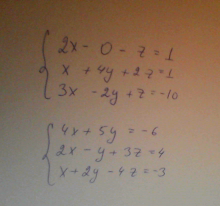 2x - 0 - z = 1
x + 4y + 2z = 1
3x - 2y + z = -10
4x + 5y = -6
2x - y + 3z = 4
x + 2y - 4z = -3